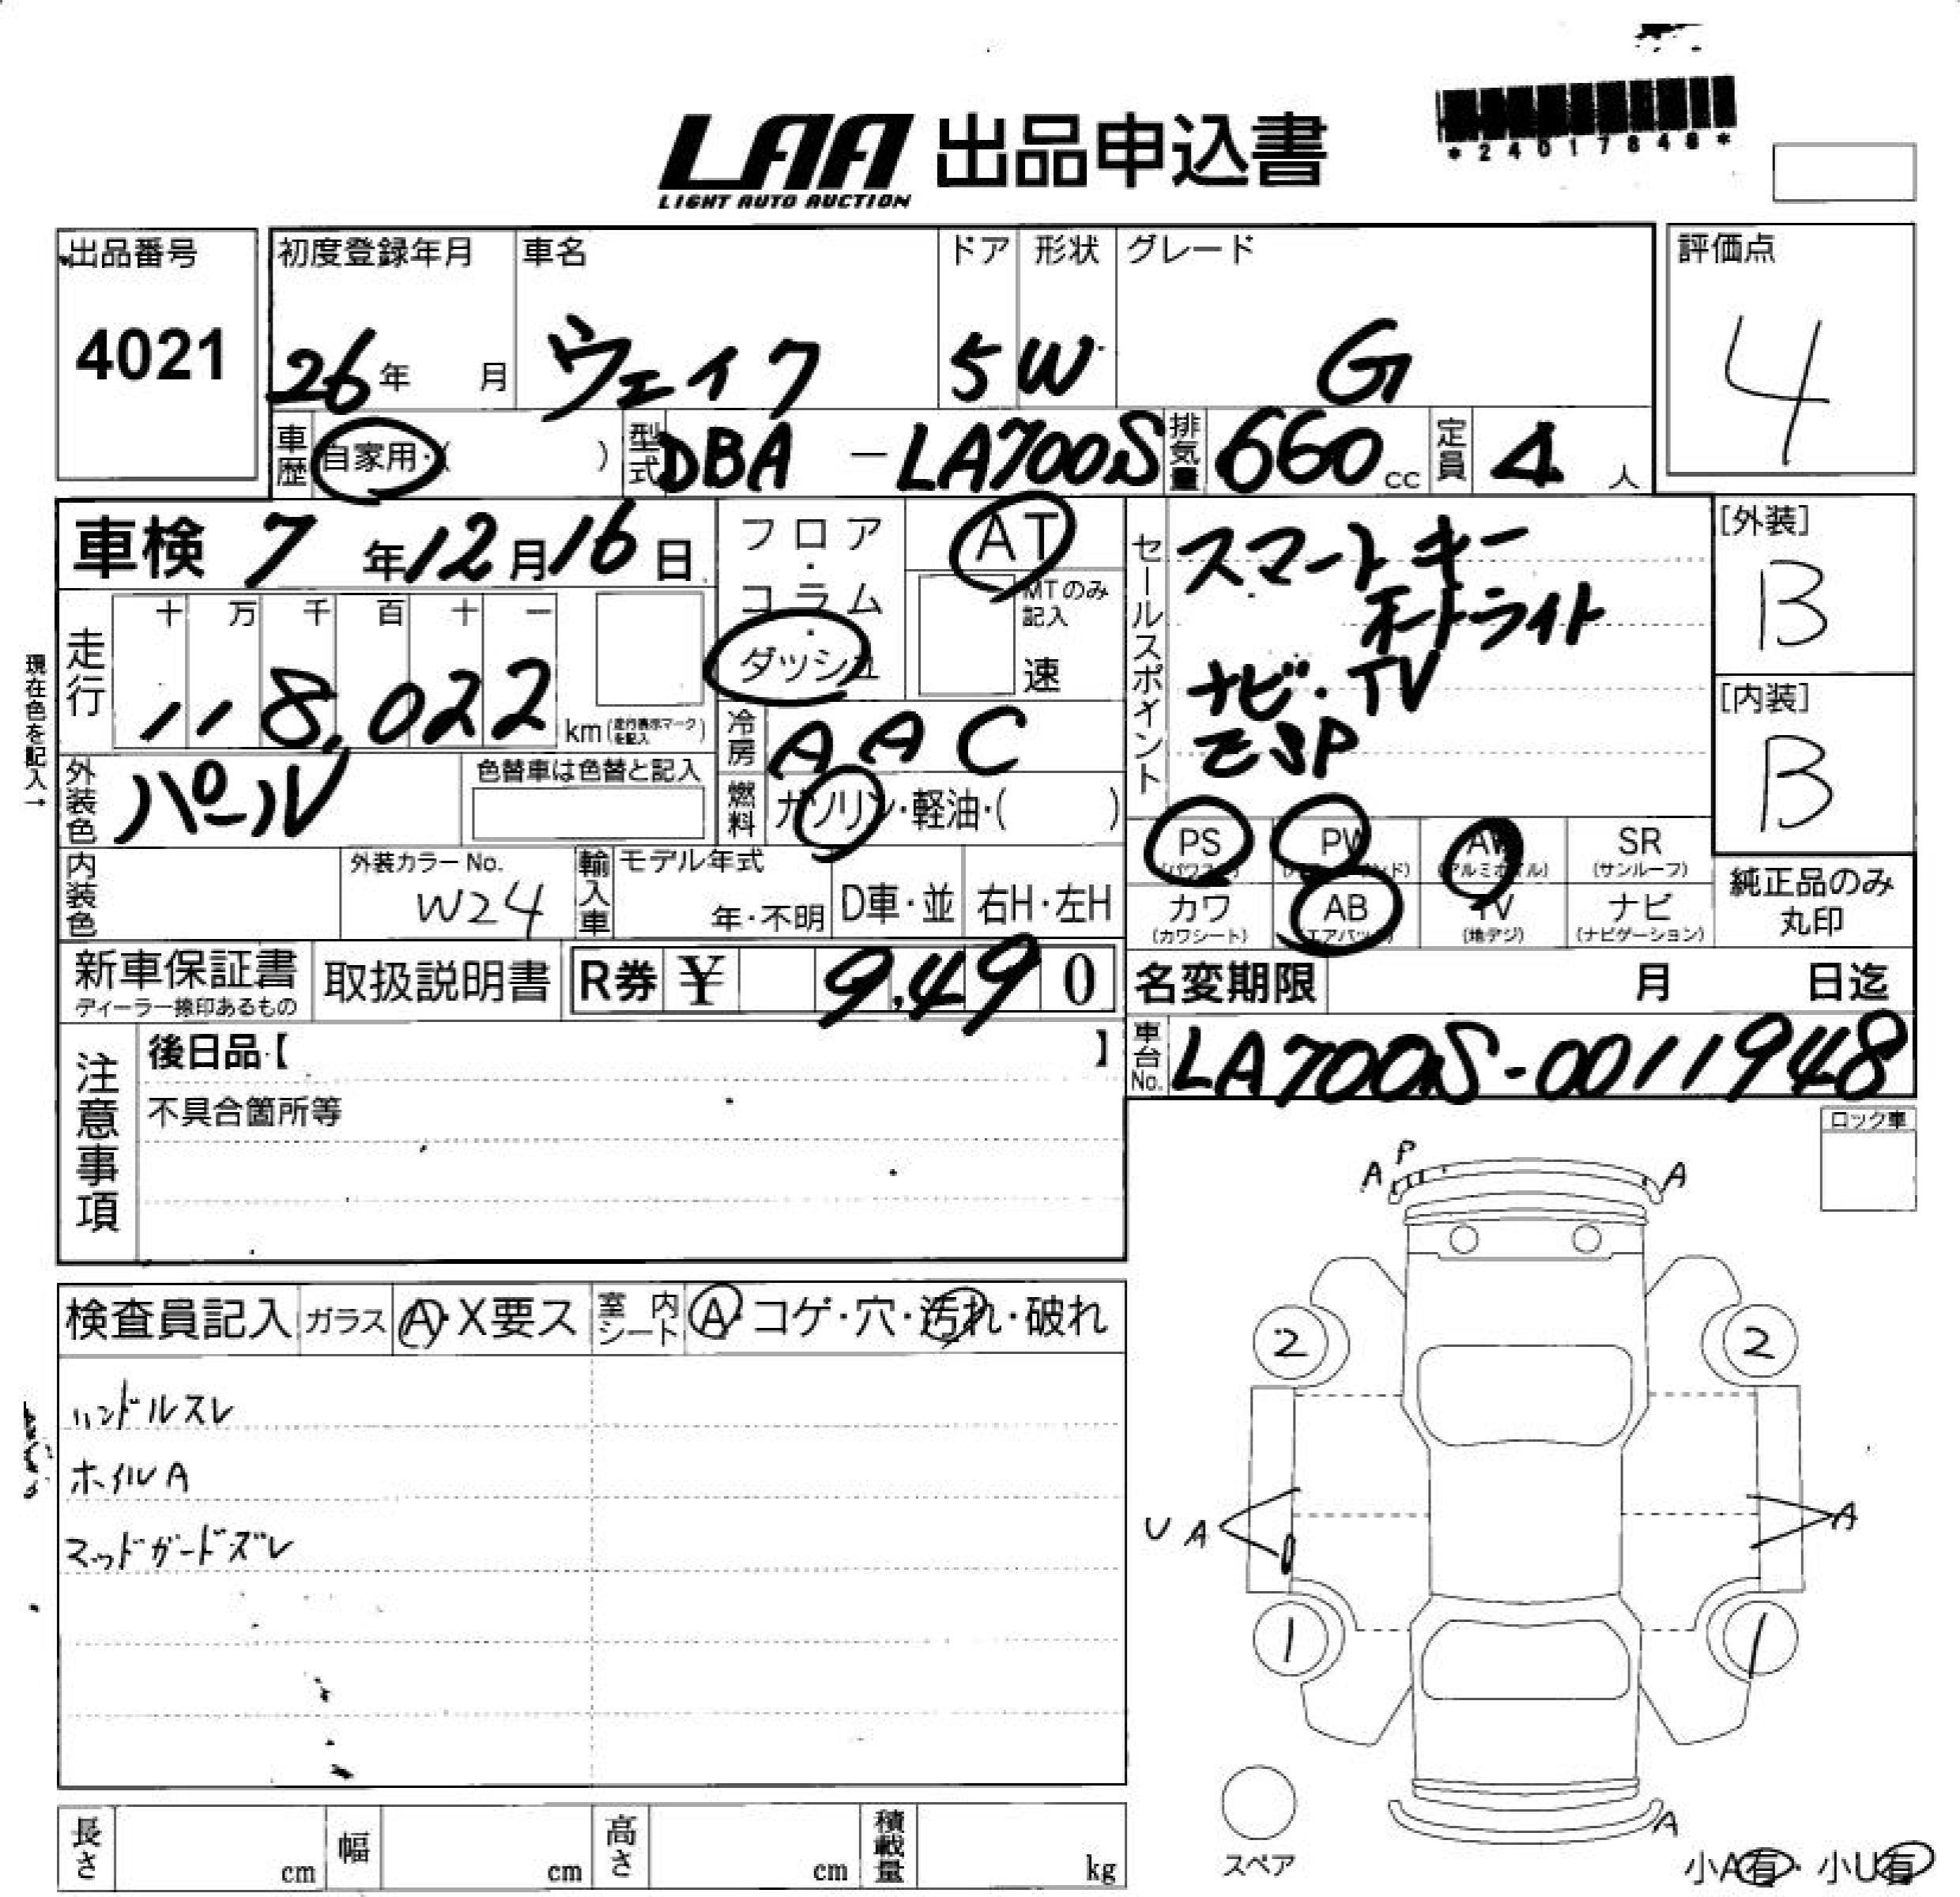 LAA 出品申込書
LIGHT AUTO AUCTION
出品番号
4021
初度登録年月
26年 月
車名
ウェイク
ドア
5
形状
W
グレード
G
評価点
4
車歴 自家用・( )
型式 DBA - LA700S
排気量 660 cc
定員 4 人
車検 7 年 12 月 16 日
現在色を記入→
走行 十 万 千 百 十 一
118,022 km (走行表示マークを記入)
フロア・コラム・ダッシュ
AT
MTのみ記入
速
外装色 パール
色替車は色替と記入
冷房 AAC
燃料 ガソリン・軽油・( )
内装色
外装カラーNo.
W24
輸入車 モデル年式
年・不明
D車・並
右H・左H
セールスポイント
スマートキー
オートライト
ナビ・TV
ESP
[外装]
B
[内装]
B
PS PW AW SR
(アルミホイル) (サンルーフ)
カワ AB TV ナビ
(カワシート) (エアバッグ) (地デジ) (ナビゲーション)
純正品のみ
丸印
新車保証書
ディーラー捺印あるもの
取扱説明書
R券 ¥ 9,490
名変期限 月 日迄
車台No. LA700S-0011948
注意事項
後日品・【 】
不具合箇所等
ロック車
検査員記入
ガラス A・X要ス
室内シート A・コゲ・穴・汚れ・破れ
ハンドルスレ
ホイルA
マッドガードズレ
A P A
2 2
U A A
1 1
スペア
A
小A有・小U有
長さ cm
幅 cm
高さ cm
積載量 kg